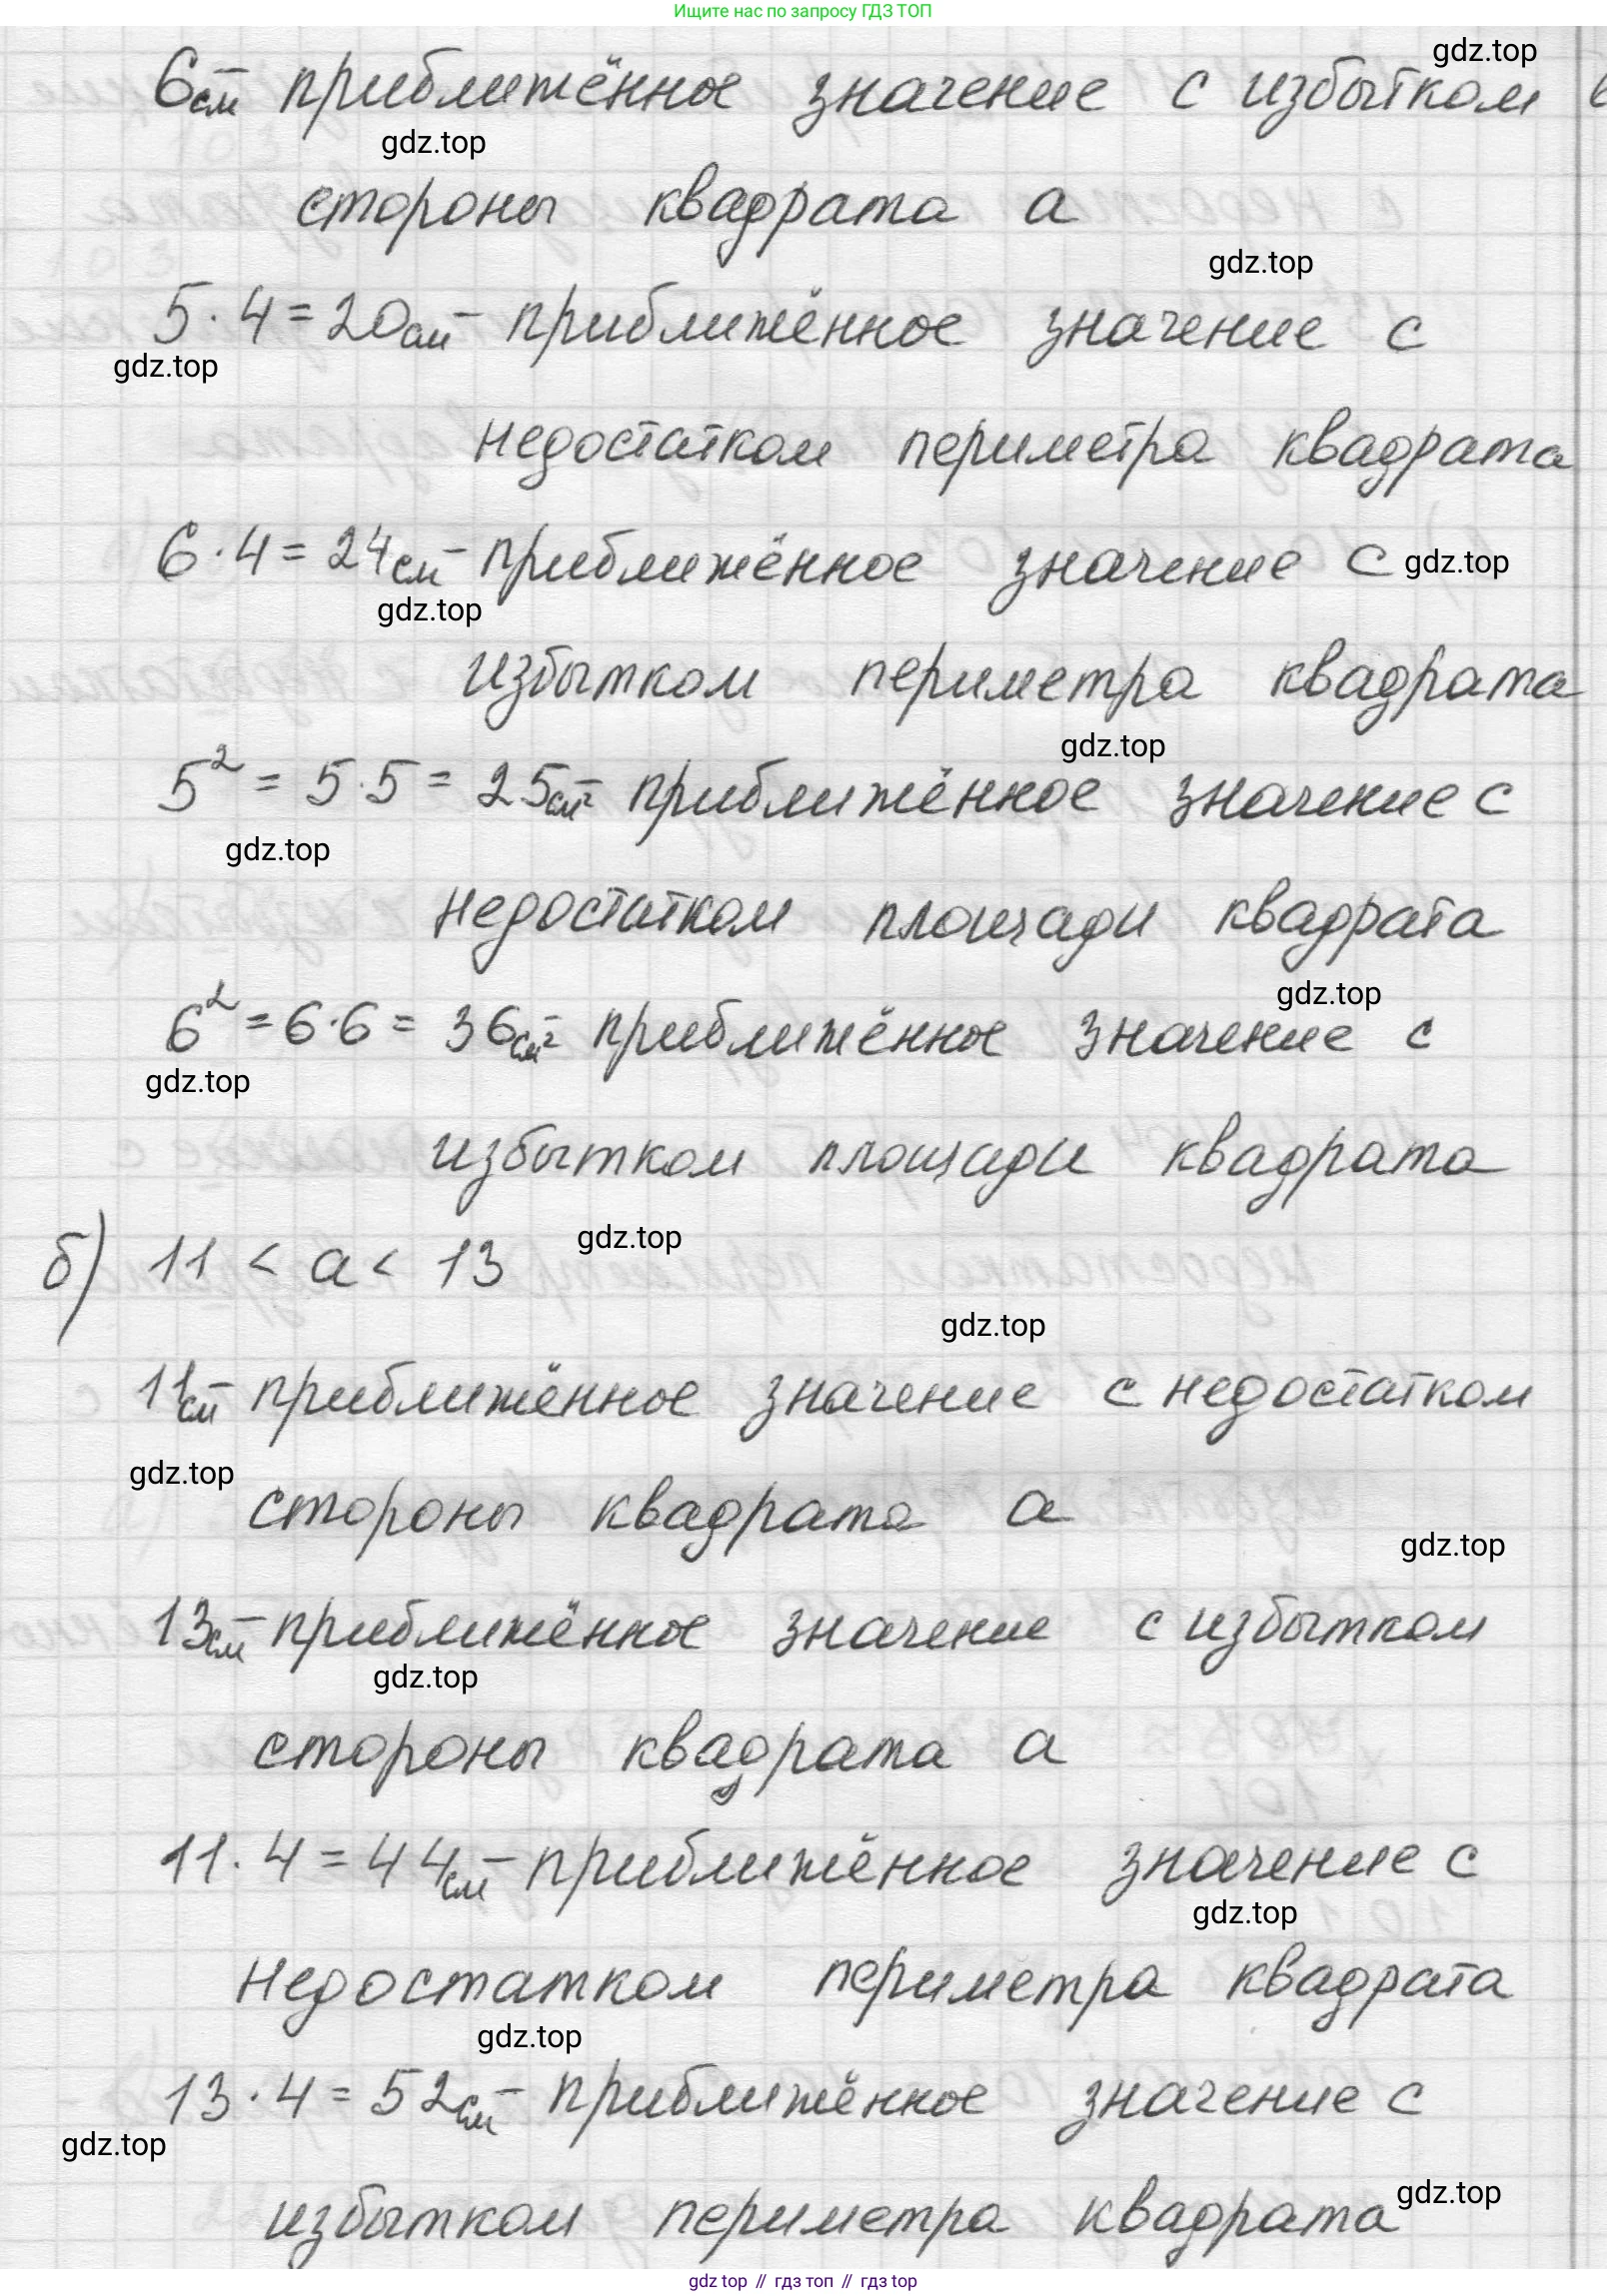 Ищите нас по запросу ГДЗ ТОП
gdz.top
6см – приближённое значение с избытком
gdz.top
стороны квадрата а
gdz.top
5 · 4 = 20см – приближённое значение с
gdz.top
недостатком периметра квадрата
6 · 4 = 24см – приближённое значение с gdz.top
gdz.top
избытком периметра квадрата
gdz.top
5² = 5 · 5 = 25см² – приближённое значение с
gdz.top
недостатком площади квадрата
gdz.top
6² = 6 · 6 = 36см² – приближённое значение с
gdz.top
избытком площади квадрата
gdz.top
б) 11 < а < 13
gdz.top
11см – приближённое значение с недостатком
gdz.top
стороны квадрата а
gdz.top
13см – приближённое значение с избытком
gdz.top
стороны квадрата а
11 · 4 = 44см – приближённое значение с
gdz.top
недостатком периметра квадрата
gdz.top
13 · 4 = 52см – приближённое значение с
gdz.top
избытком периметра квадрата gdz.top
gdz top // гдз топ // гдз top